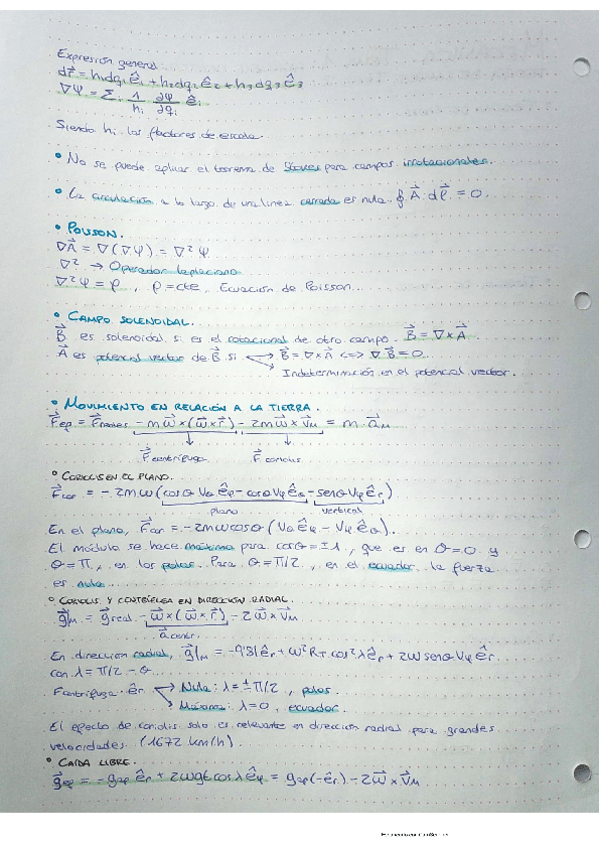 Expresión general
dr⃗ = h₁dq₁ê₁ + h₂dq₂ê₂ + h₃dq₃ê₃
∇Ψ = Σᵢ 1/hᵢ ∂Ψ/∂qᵢ êᵢ
Siendo hᵢ los factores de escala.
• No se puede aplicar el teorema de Stokes para campos irrotacionales.
• La circulación a lo largo de una línea cerrada es nula ∮ A⃗ · dl⃗ = 0.
• POISSON.
∇A⃗ = ∇(∇Ψ) = ∇²Ψ
∇² → Operador laplaciano
∇²Ψ = ρ, ρ = cte, Ecuación de Poisson.
• CAMPO SOLENOIDAL.
B⃗ es solenoidal si es el rotacional de otro campo. B⃗ = ∇ × A⃗
A⃗ es potencial vector de B⃗ si B⃗ = ∇ × A⃗ <=> ∇B⃗ = 0
Indeterminación en el potencial vector.
• MOVIMIENTO EN RELACIÓN A LA TIERRA.
F⃗ap = F⃗reales - mω⃗ × (ω⃗ × r⃗) - 2mω⃗ × v⃗M = m · a⃗M
F⃗ centrífuga F⃗ coriolis
• CORIOLIS EN EL PLANO.
F⃗cor = -2mω(cosθ Vθ êφ - cosθ Vφ êθ - senθ Vφ êr)
plano vertical
En el plano, F⃗cor = -2mωcosθ (Vθ êφ - Vφ êθ).
El módulo se hace máximo para cosθ = ±1, que es en θ = 0 y
θ = π, en los polos. Para θ = π/2, en el ecuador la fuerza
es nula.
• CORIOLIS Y CENTRÍFUGA EN DIRECCIÓN RADIAL.
g⃗M = g⃗real - ω⃗ × (ω⃗ × r⃗) - 2ω⃗ × v⃗M
a⃗centr.
En dirección radial, g⃗M = -9'81 êr + ω²RT cos²λ êr + 2ω senθ Vφ êr
con λ = π/2 - θ
Fcentrífuga · êr Nula: λ = ±π/2, polos.
Máxima: λ = 0, ecuador.
El efecto de coriolis solo es relevante en dirección radial para grandes
velocidades. (1672 km/h).
• CAÍDA LIBRE.
g⃗ap = -gap êr + 2ωgt cosλ êφ = gap(-êr) - 2ω⃗ × v⃗M